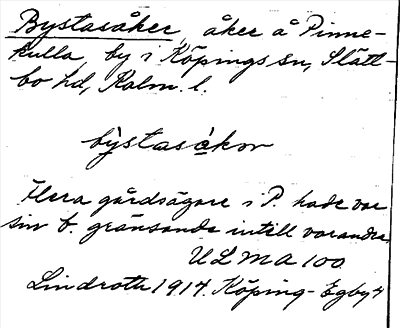 Bystasåker, åker å Pinne-
kulla, by i Köpings sn, Slätt-
bo hd, Kalm. l.
bystasåkor
Flera gårdsägare i P. hade var
sin b. gränsande intill varandra.
ULMA 100
Lindroth 1914. Köping-Egby 4